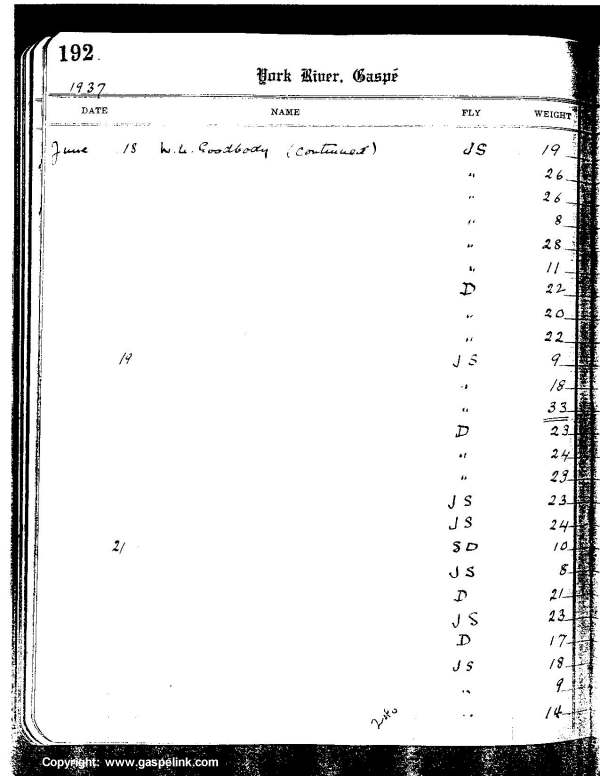 192.
York River, Gaspé
1937
DATE NAME FLY WEIGHT
June 18 W. G. Goodbody (continued) JS 19
" 26
" 26
" 8
" 28
" 11
D 22
" 20
" 22
19 JS 9
" 18
" 33
D 23
" 24
" 29
JS 23
JS 24
21 SD 10
JS 8
D 21
JS 23
D 17
JS 18
" 9
" 14
Copyright: www.gaspelink.com